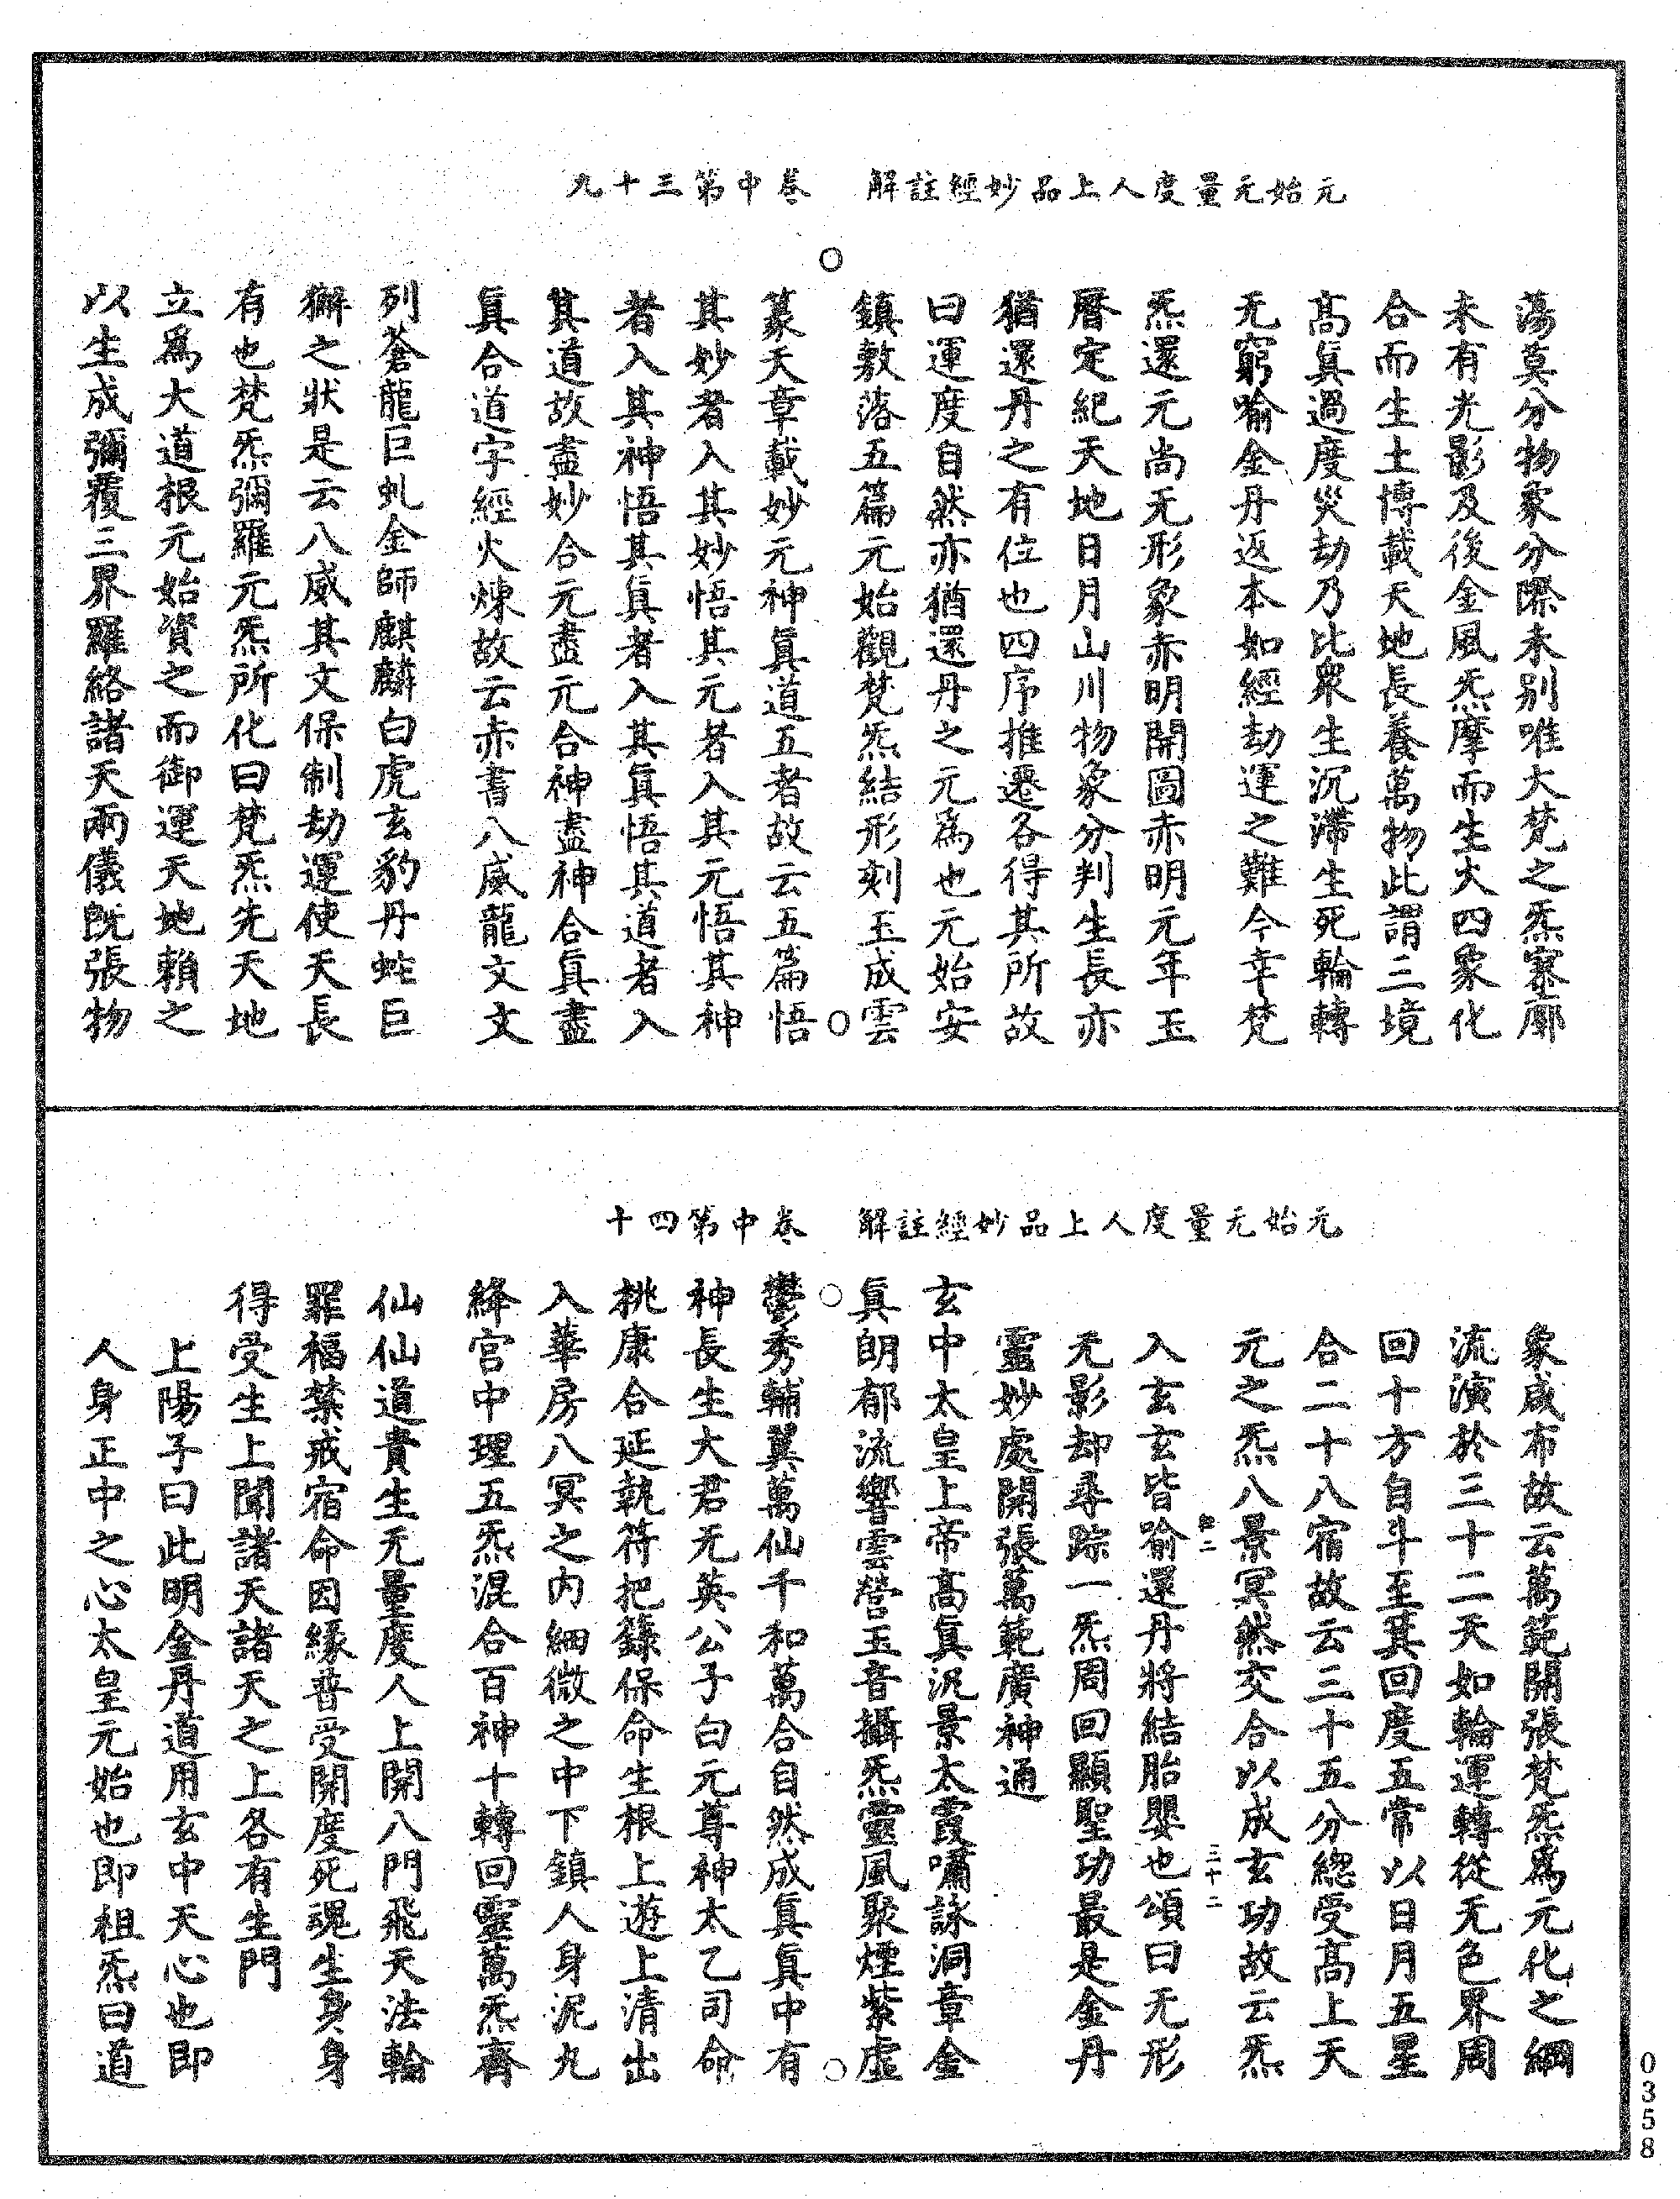 元始无量度人上品妙經註解　卷中第三十九
蕩莫分物象分際未别唯大梵之炁寥廓
未有光影及後金風炁摩而生火四象化
合而生土博載天地長養萬物此謂三境
高眞過度災劫乃比衆生沉滯生死輪轉
无窮喻金丹返本如經劫運之難今幸梵
炁還元尚无形象赤明開圖赤明元年玉
曆定紀天地日月山川物象分判生長亦
猶還丹之有位也四序推遷各得其所故
曰運度自然亦猶還丹之元爲也元始安
鎮敷落五篇元始觀梵炁結形刻玉成雲
篆天章載妙元神眞道五者故云五篇悟
其妙者入其妙悟其元者入其元悟其神
者入其神悟其眞者入其眞悟其道者入
其道故盡妙合元盡元合神盡神合眞盡
眞合道字經火煉故云赤書八威龍文文
列蒼龍巨虬金師麒麟白虎玄豹丹蛇巨
獬之狀是云八威其文保制劫運使天長
有也梵炁彌羅元炁所化曰梵炁先天地
立爲大道根元始資之而御運天地賴之
以生成彌覆三界羅絡諸天兩儀旣張物
元始无量度人上品妙經註解　卷中第四十
象咸布故云萬範開張梵炁爲元化之綱
流演於三十二天如輪運轉從无色界周
回十方自斗至箕回度五常以日月五星
合二十八宿故云三十五分總受高上天
元之炁八景冥然交合以成玄功故云炁
入玄玄皆喻還丹將結胎嬰也頌曰无形
无影却尋踪一炁周回顯聖功最是金丹
靈妙處開張萬範廣神通
玄中太皇上帝高眞汎景太霞嘯詠洞章金
眞朗郁流響雲營玉音攝炁靈風聚煙紫虛
鬱秀輔翼萬仙千和萬合自然成眞眞中有
神長生大君无英公子白元尊神太乙司命
桃康合延執符把籙保命生根上遊上清出
入華房八冥之内細微之中下鎮人身泥丸
絳宮中理五炁混合百神十轉回靈萬炁齊
仙仙道貴生无量度人上開八門飛天法輪
罪福禁戒宿命因緣普受開度死魂生身身
得受生上聞諸天諸天之上各有生門
上陽子曰此明金丹道用玄中天心也即
人身正中之心太皇元始也即祖炁曰道
三十二
0358